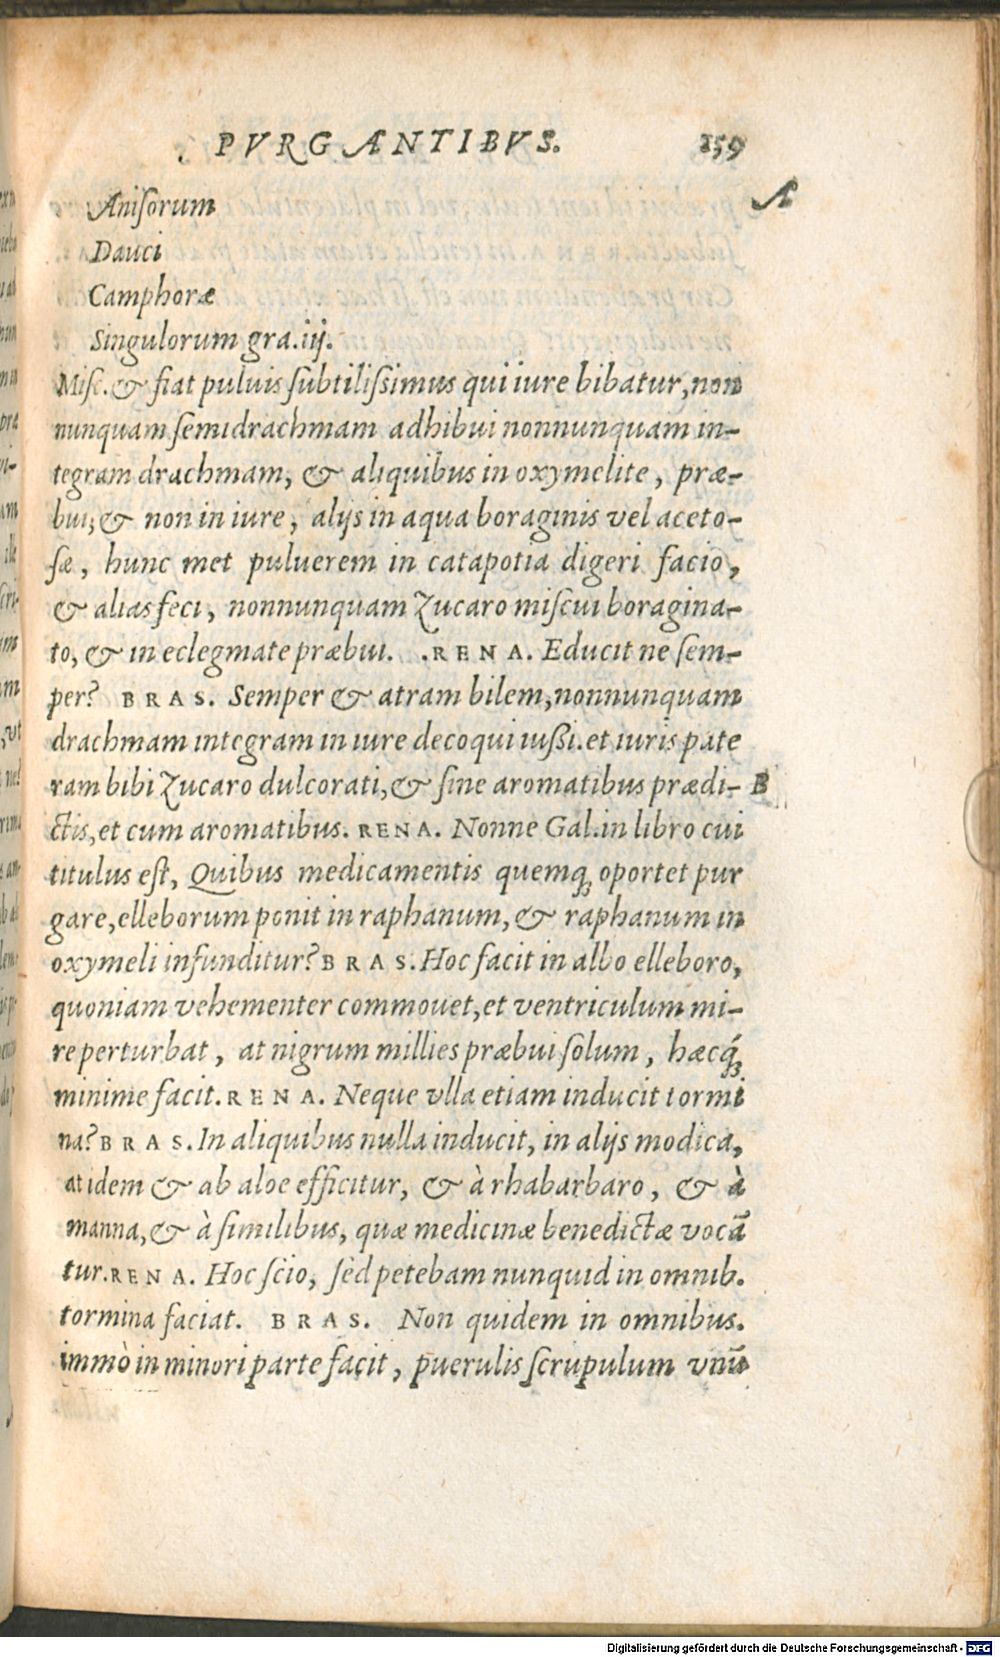 PVRGANTIBVS. 159
A
Anisorum
Dauci
Camphoræ
Singulorum gra.iij.
Misc. & fiat puluis subtilißimus qui iure bibatur, non
nunquam semidrachmam adhibui nonnunquam in-
tegram drachmam, & aliquibus in oxymelite, præ-
bui; & non in iure, alijs in aqua boraginis vel aceto-
sæ, hunc met puluerem in catapotia digeri facio,
& alias feci, nonnunquam Zucaro miscui boragina-
to, & in eclegmate præbui. .RENA. Educit ne sem-
per? BRAS. Semper & atram bilem, nonnunquam
drachmam integram in iure decoqui iußi.et iuris pate
ram bibi Zucaro dulcorati, & sine aromatibus prædi- B
ctis, et cum aromatibus. RENA. Nonne Gal.in libro cui
titulus est, Quibus medicamentis quemq; oportet pur
gare, elleborum ponit in raphanum, & raphanum in
oxymeli infunditur? BRAS. Hoc facit in albo elleboro,
quoniam vehementer commouet, et ventriculum mi-
re perturbat, at nigrum millies præbui solum, hæcq́;
minime facit. RENA. Neque vlla etiam inducit tormi
na? BRAS. In aliquibus nulla inducit, in alijs modica,
at idem & ab aloe efficitur, & à rhabarbaro, & à
manna, & à similibus, quæ medicinæ benedictæ vocā
tur. RENA. Hoc scio, sèd petebam nunquid in omnib.
tormina faciat. BRAS. Non quidem in omnibus.
immò in minori parte facit, puerulis scrupulum vnū
Digitalisierung gefördert durch die Deutsche Forschungsgemeinschaft - DFG